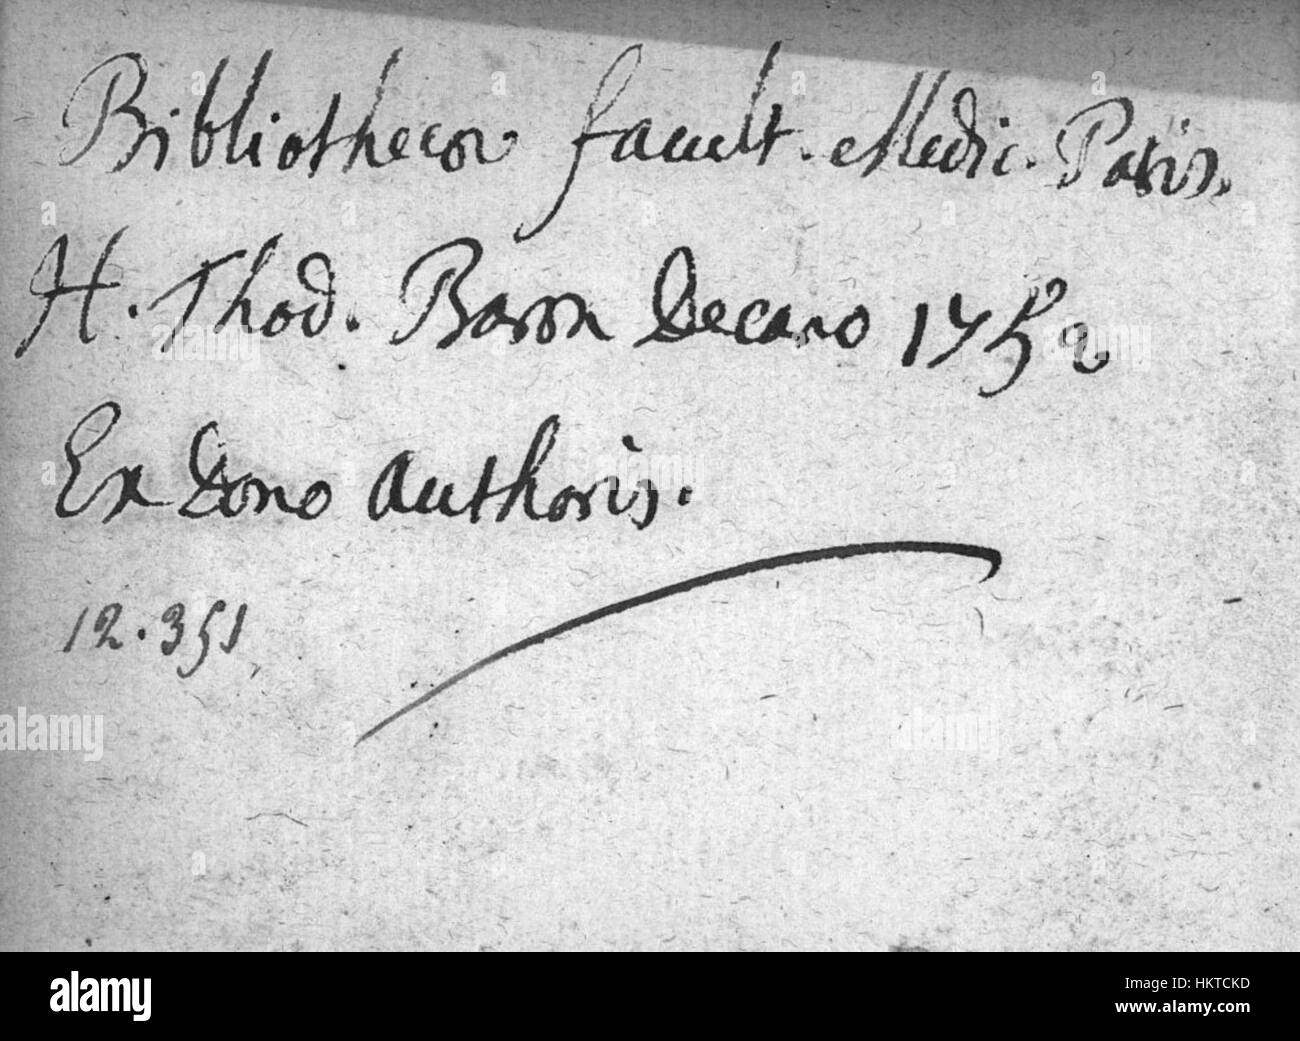 Bibliothecæ facult. Medic. Paris.
H. Thod. Baron Decano 1752
Ex Dono authoris.
12.351
alamy
alamy stock photo
Image ID: HKTCKD
www.alamy.com